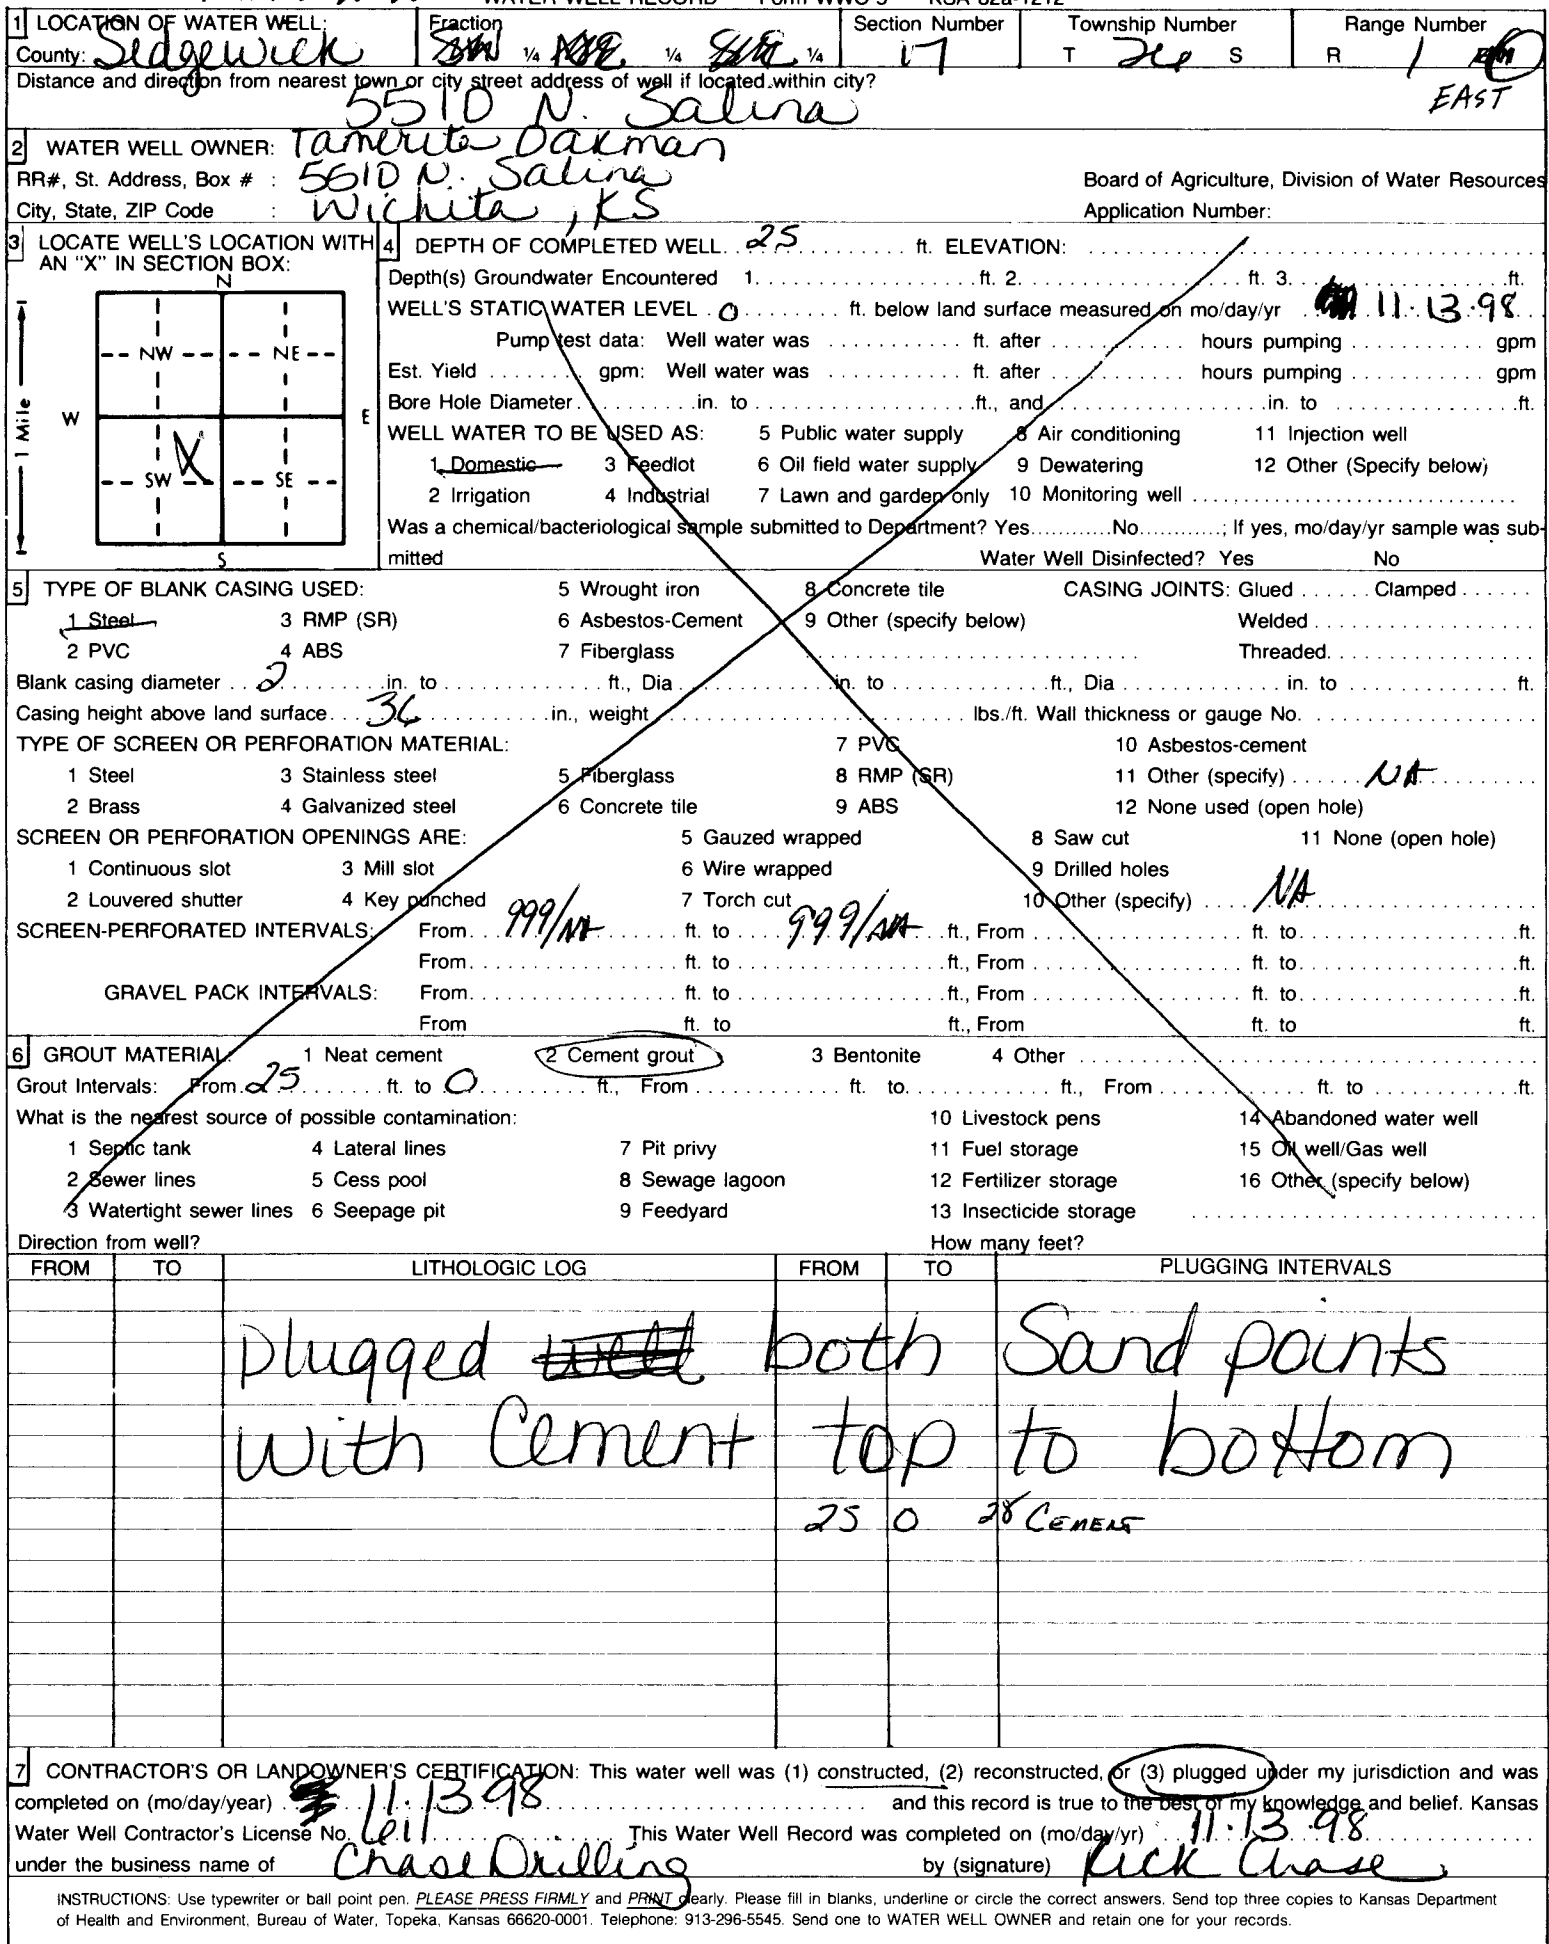 WATER WELL RECORD Form WWC-5 KSA 82a-1212
1 LOCATION OF WATER WELL: Fraction Section Number Township Number Range Number
County: Sedgewick ¼ ¼ ¼ 17 T 26 S R 1
EAST
Distance and direction from nearest town or city street address of well if located within city?
5510 N. Salina
2 WATER WELL OWNER: Tamerita Oakman
RR#, St. Address, Box # : 5610 N. Salina Board of Agriculture, Division of Water Resources
City, State, ZIP Code : Wichita, KS Application Number:
3 LOCATE WELL'S LOCATION WITH AN "X" IN SECTION BOX:
N
NW NE
W E
X
SW SE
S
1 Mile
4 DEPTH OF COMPLETED WELL 25 ft. ELEVATION:
Depth(s) Groundwater Encountered 1. ft. 2. ft. 3. ft.
WELL'S STATIC WATER LEVEL 0 ft. below land surface measured on mo/day/yr 11.13.98
Pump test data: Well water was ft. after hours pumping gpm
Est. Yield gpm: Well water was ft. after hours pumping gpm
Bore Hole Diameter in. to ft., and in. to ft.
WELL WATER TO BE USED AS: 5 Public water supply 8 Air conditioning 11 Injection well
1 Domestic 3 Feedlot 6 Oil field water supply 9 Dewatering 12 Other (Specify below)
2 Irrigation 4 Industrial 7 Lawn and garden only 10 Monitoring well
Was a chemical/bacteriological sample submitted to Department? Yes No ; If yes, mo/day/yr sample was sub-
mitted Water Well Disinfected? Yes No
5 TYPE OF BLANK CASING USED: 5 Wrought iron 8 Concrete tile CASING JOINTS: Glued Clamped
1 Steel 3 RMP (SR) 6 Asbestos-Cement 9 Other (specify below) Welded
2 PVC 4 ABS 7 Fiberglass Threaded
Blank casing diameter 2 in. to ft., Dia in. to ft., Dia in. to ft.
Casing height above land surface 36 in., weight lbs./ft. Wall thickness or gauge No.
TYPE OF SCREEN OR PERFORATION MATERIAL: 7 PVC 10 Asbestos-cement
1 Steel 3 Stainless steel 5 Fiberglass 8 RMP (SR) 11 Other (specify) NA
2 Brass 4 Galvanized steel 6 Concrete tile 9 ABS 12 None used (open hole)
SCREEN OR PERFORATION OPENINGS ARE: 5 Gauzed wrapped 8 Saw cut 11 None (open hole)
1 Continuous slot 3 Mill slot 6 Wire wrapped 9 Drilled holes
2 Louvered shutter 4 Key punched 7 Torch cut 10 Other (specify) NA
SCREEN-PERFORATED INTERVALS: From 999/NA ft. to 999/NA ft., From ft. to ft.
From ft. to ft., From ft. to ft.
GRAVEL PACK INTERVALS: From ft. to ft., From ft. to ft.
From ft. to ft., From ft. to ft.
6 GROUT MATERIAL: 1 Neat cement 2 Cement grout 3 Bentonite 4 Other
Grout Intervals: From 25 ft. to 0 ft., From ft. to ft., From ft. to ft.
What is the nearest source of possible contamination: 10 Livestock pens 14 Abandoned water well
1 Septic tank 4 Lateral lines 7 Pit privy 11 Fuel storage 15 Oil well/Gas well
2 Sewer lines 5 Cess pool 8 Sewage lagoon 12 Fertilizer storage 16 Other (specify below)
3 Watertight sewer lines 6 Seepage pit 9 Feedyard 13 Insecticide storage
Direction from well? How many feet?
FROM TO LITHOLOGIC LOG FROM TO PLUGGING INTERVALS
Plugged well both Sand points
with Cement top to bottom
25 0 28 CEMENT
7 CONTRACTOR'S OR LANDOWNER'S CERTIFICATION: This water well was (1) constructed, (2) reconstructed, or (3) plugged under my jurisdiction and was
completed on (mo/day/year) 11.13.98 and this record is true to the best of my knowledge and belief. Kansas
Water Well Contractor's License No. 611 This Water Well Record was completed on (mo/day/yr) 11.13.98
under the business name of Chase Drilling by (signature) Rick Chase
INSTRUCTIONS: Use typewriter or ball point pen. PLEASE PRESS FIRMLY and PRINT clearly. Please fill in blanks, underline or circle the correct answers. Send top three copies to Kansas Department
of Health and Environment, Bureau of Water, Topeka, Kansas 66620-0001. Telephone: 913-296-5545. Send one to WATER WELL OWNER and retain one for your records.